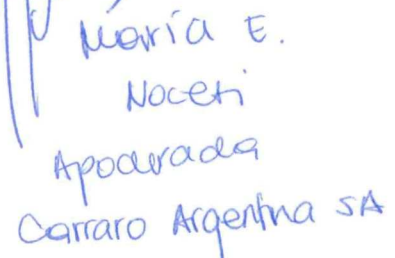 María E.
Noceti
Apoderada
Carraro Argentina SA